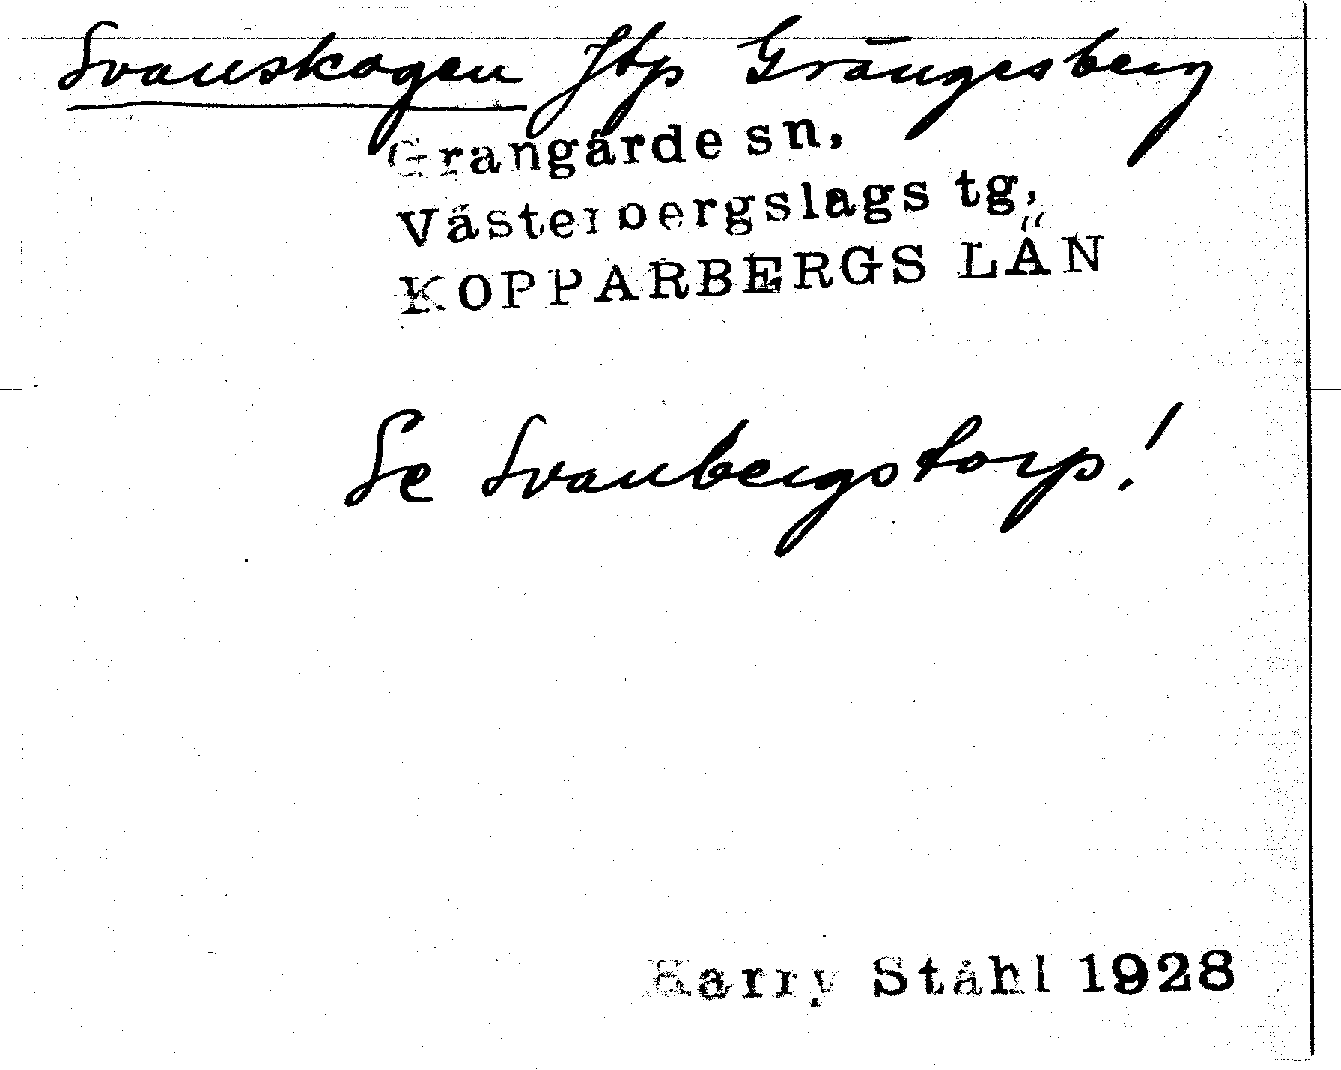 Svanskogen Jtp Grängesberg
Grangärde sn,
Västerbergslags tg,
KOPPARBERGS LÄN
Se Svanbergstorp!
Harry Ståhl 1928